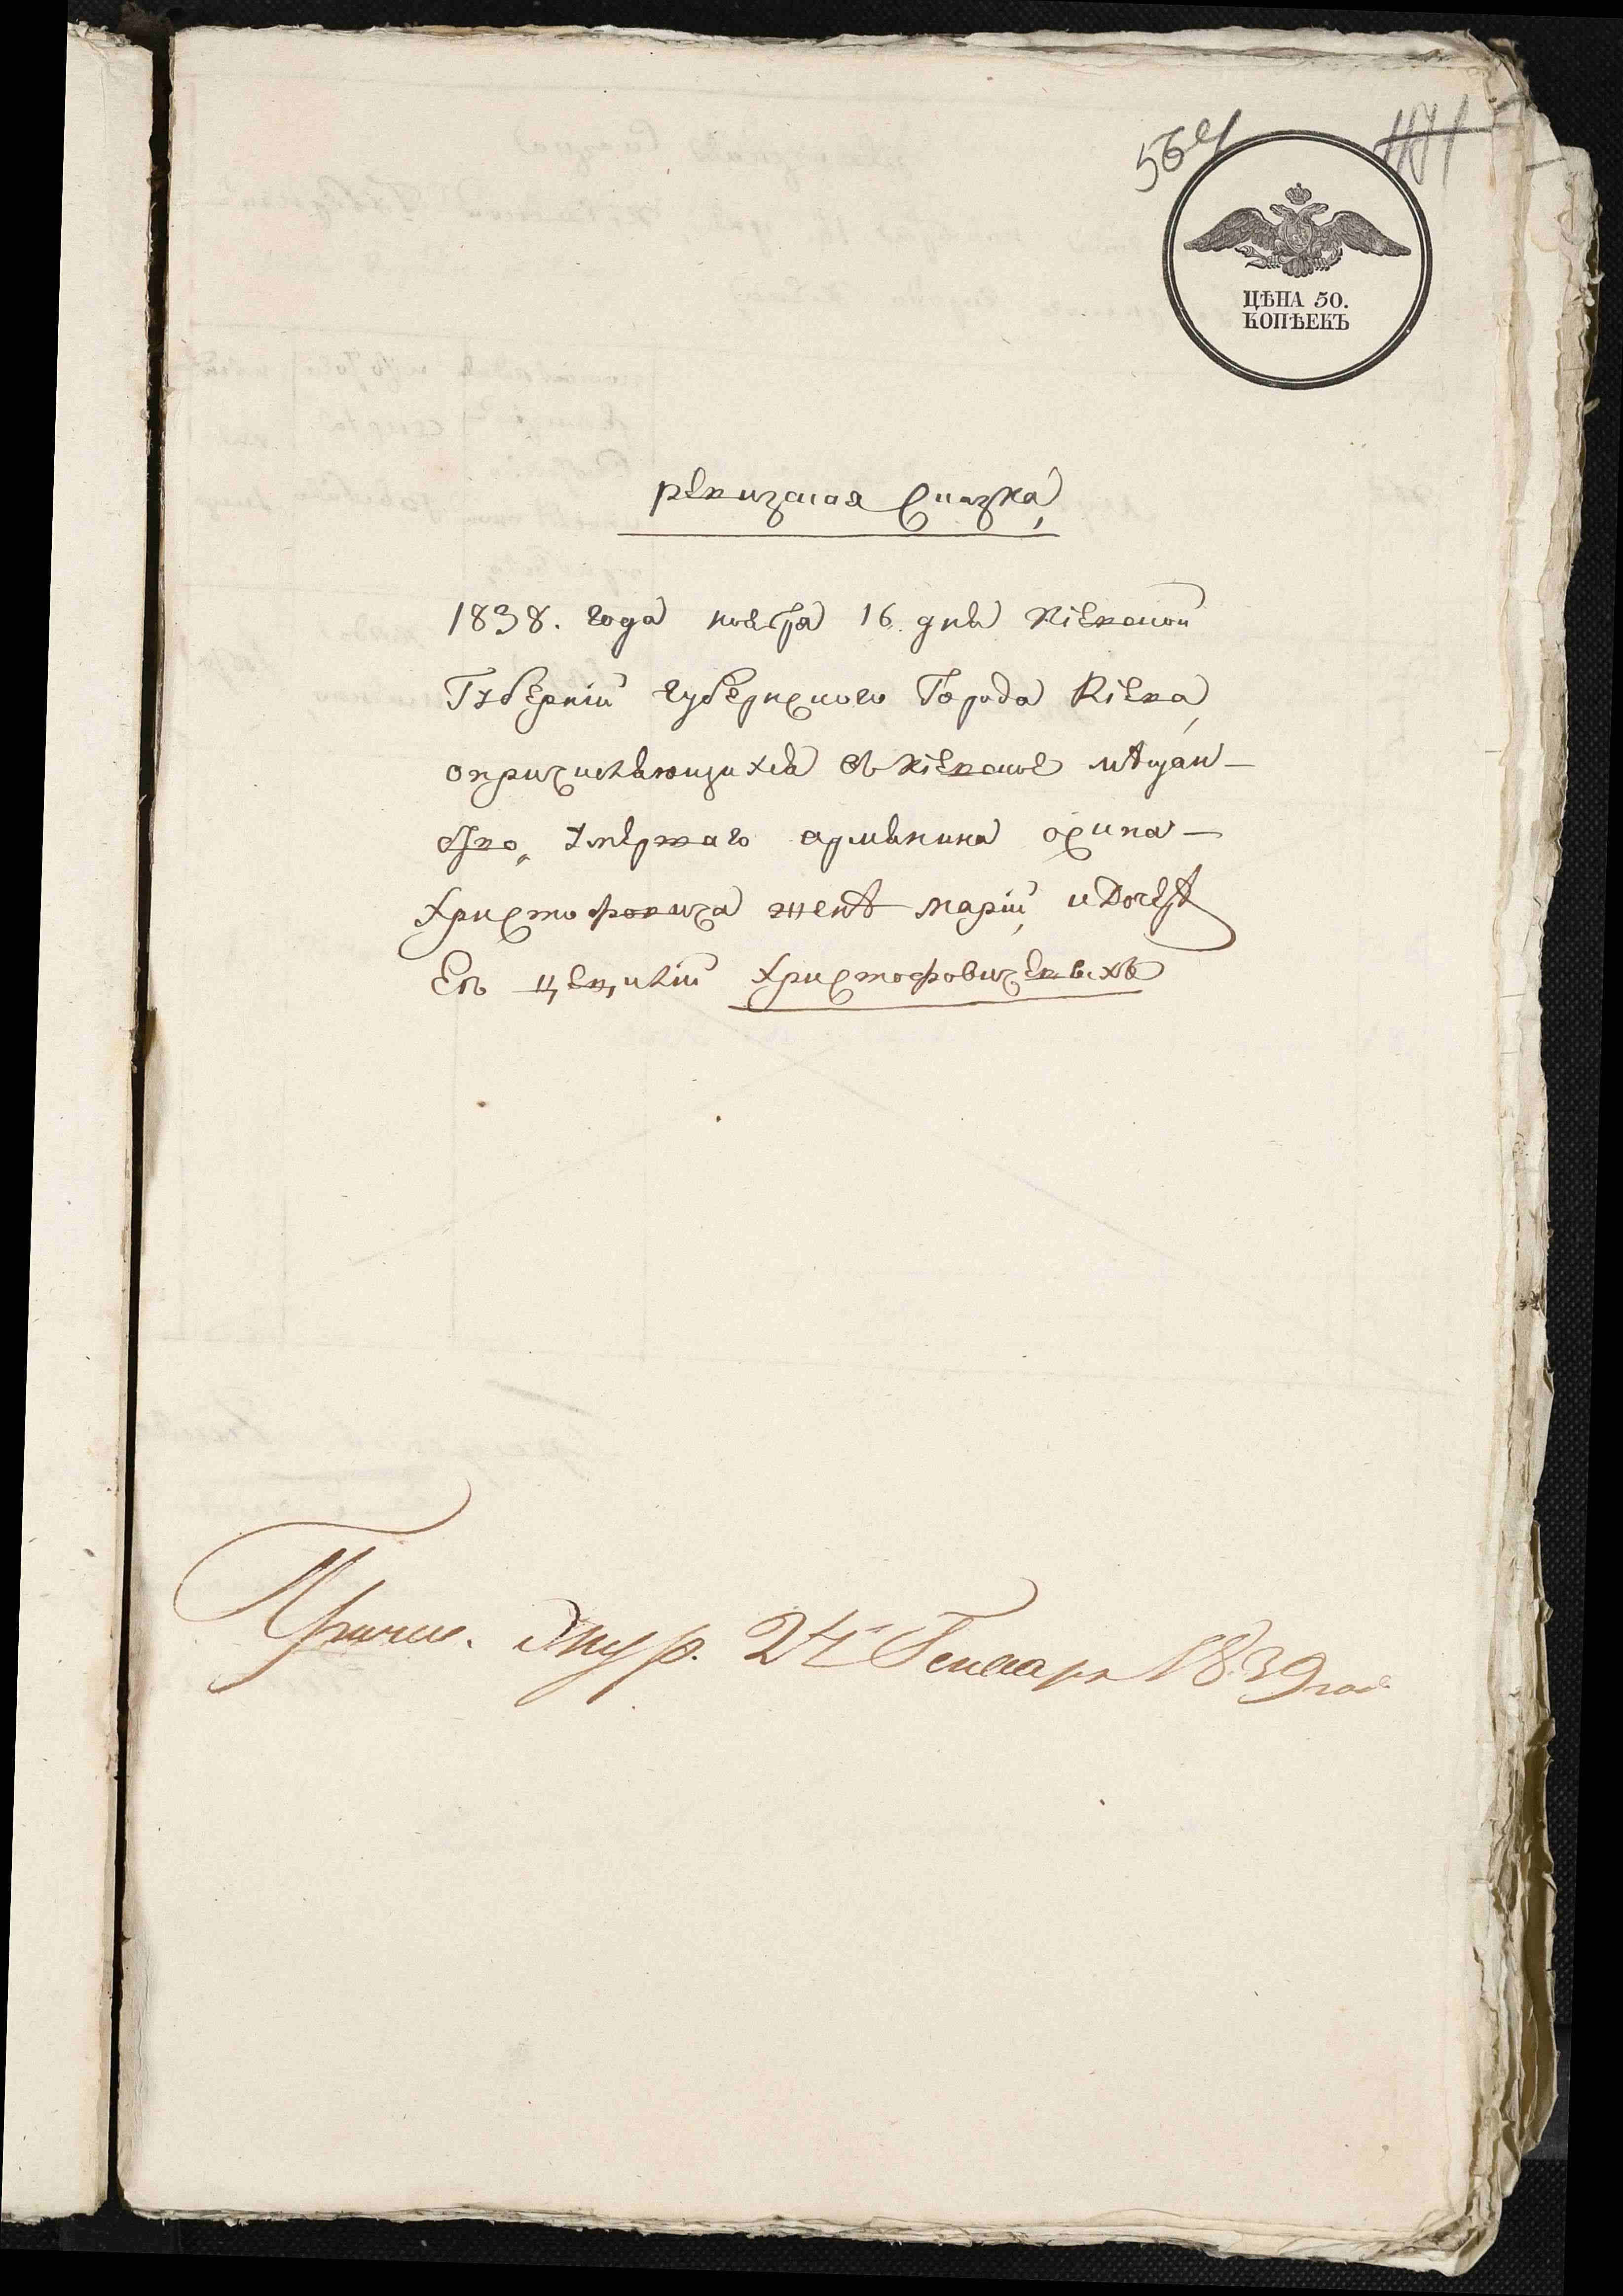 564
ЦѢНА 50.
КОПѢЕКЪ
ревизская Сказка,
1838. года ноября 16 дня Кіевской
Губерніи губернского Города Кіева,
опричисляющихся въ Кіевское мѣщан-
ство, Умершаго армянина осипа-
Христофовича женѣ маріи, и Дочерѣ
Ея цецилiи Христофовичевыхъ
24 Генваря 1839 года